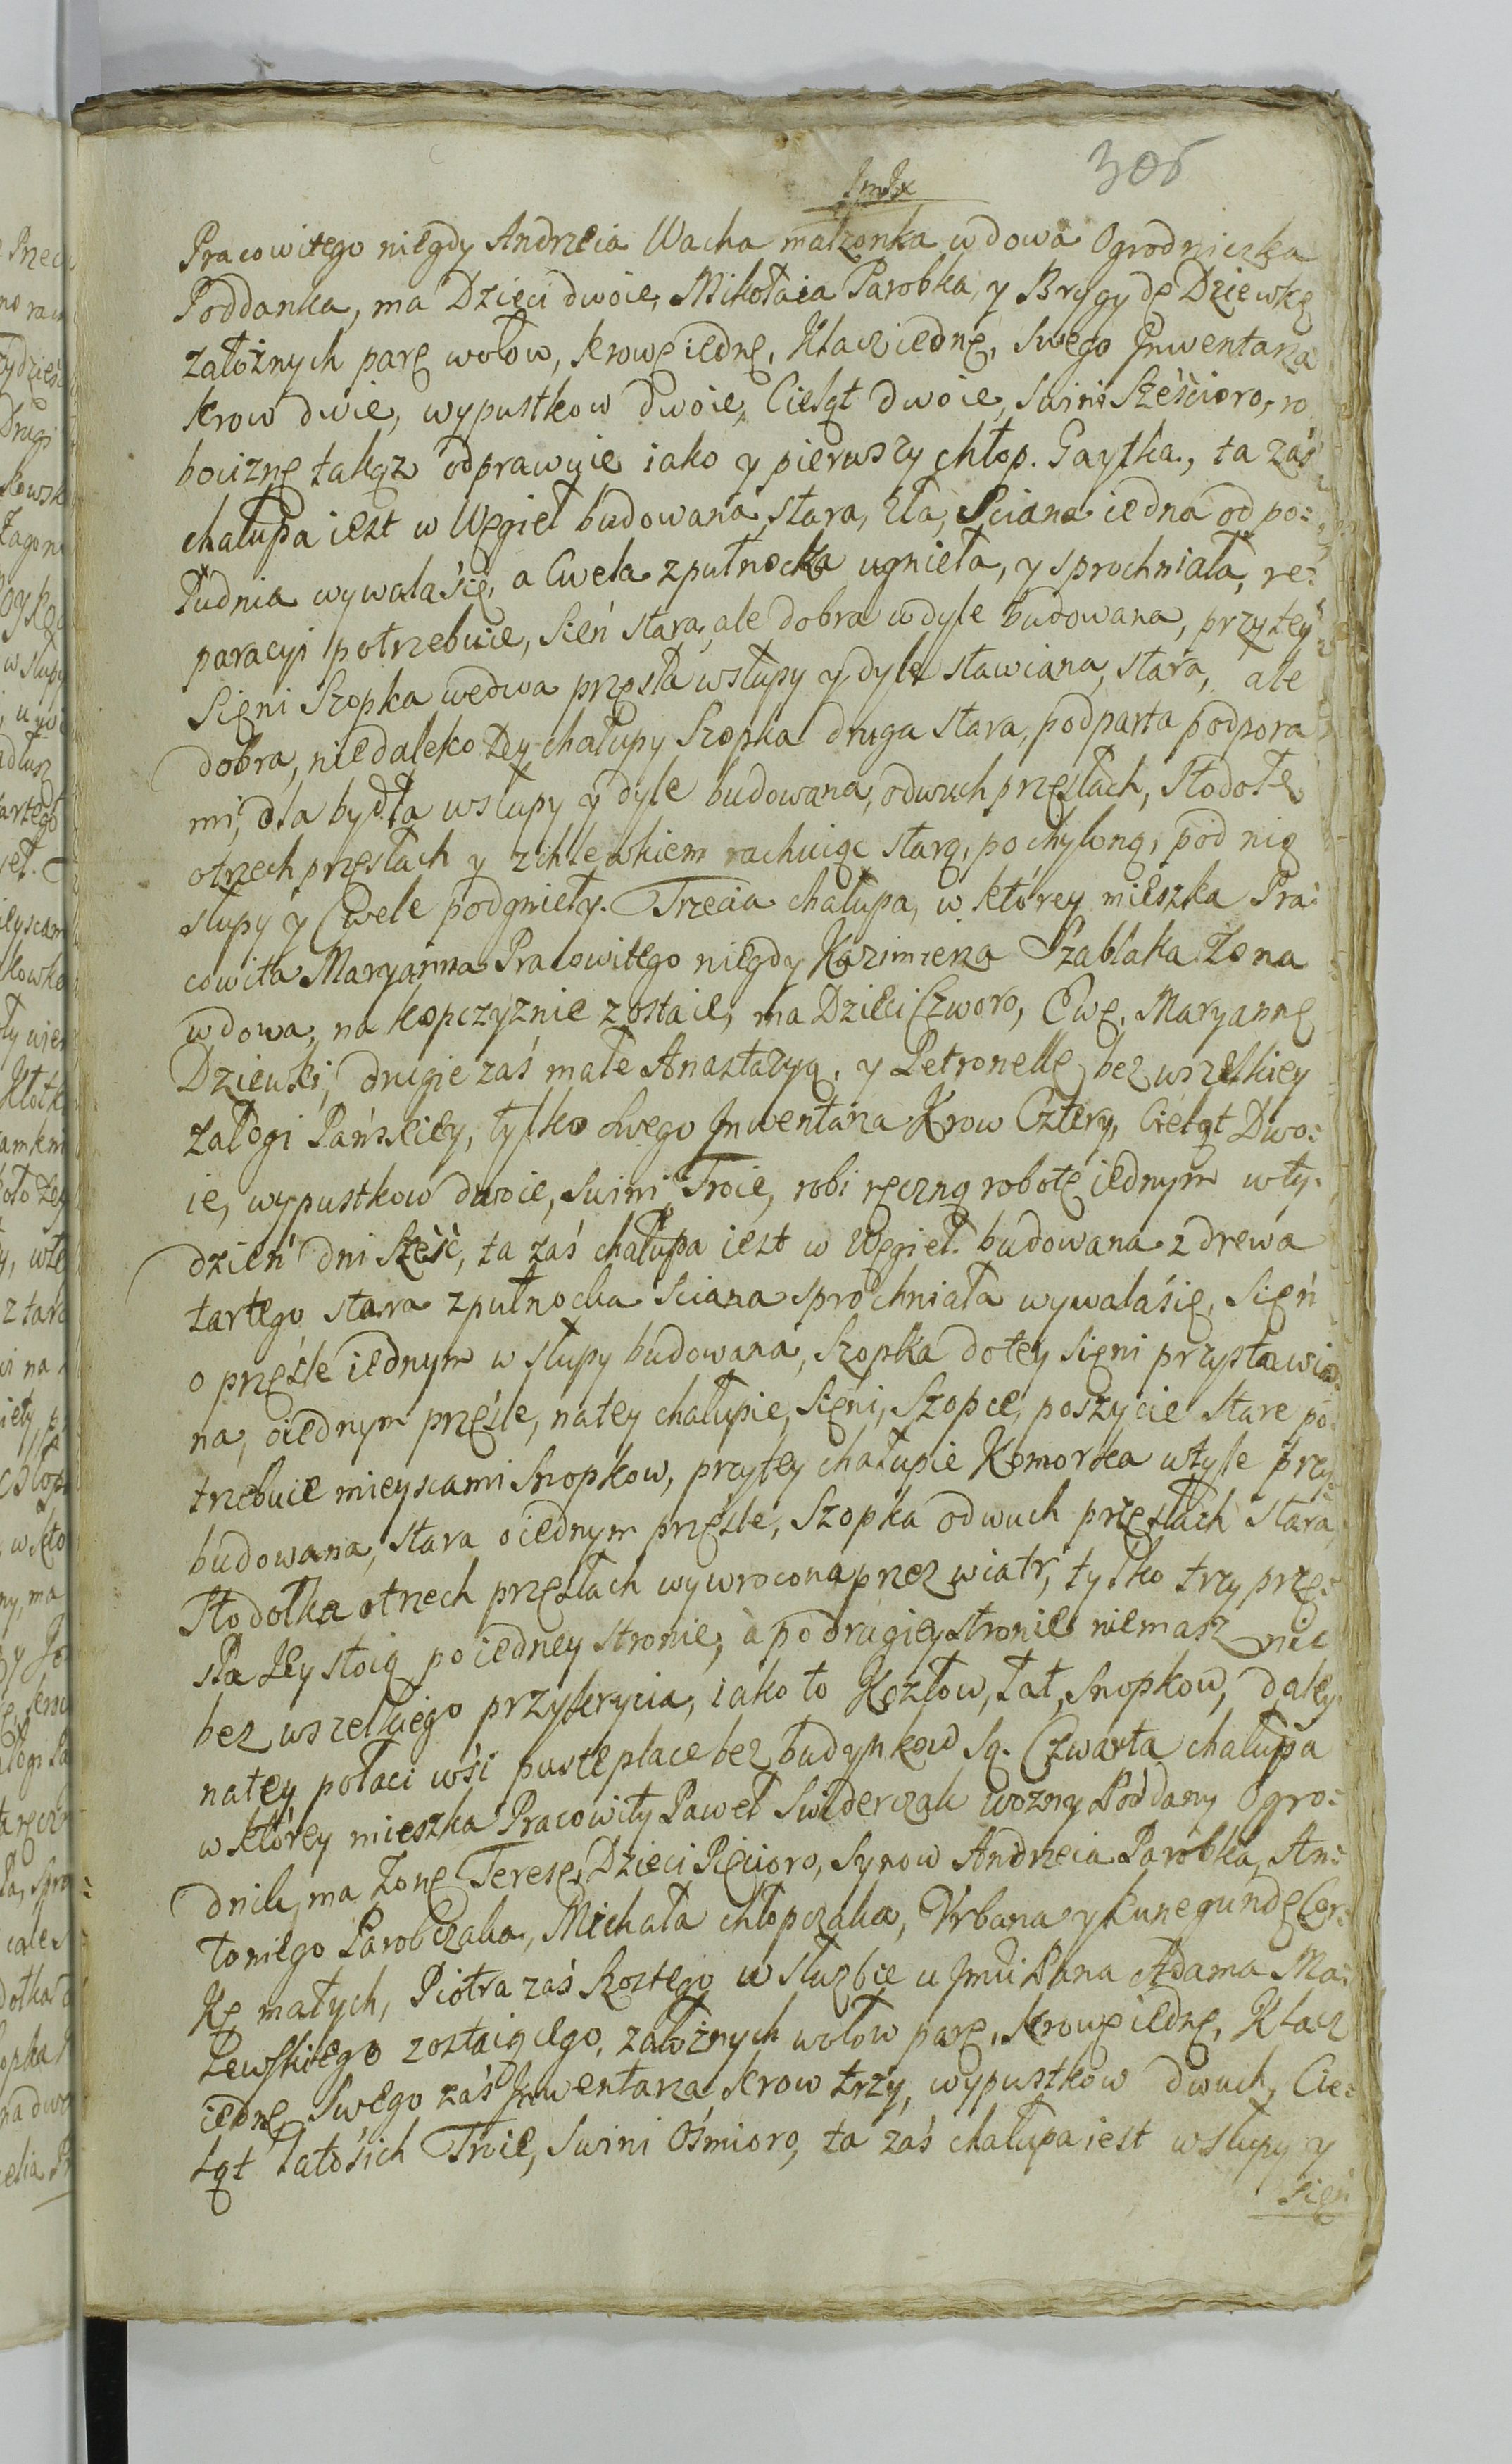 306
Pracowitego niegdy Andrzeia Wacha małzonka wdowa Ogrodniczka
Poddanka, ma Dzieci dwoie, Mikołaia Parobka, y Brygydę Dziewkę
założnych parę wołow, krowę iednę, Klacz iednę, swego Jnwentarza
krow dwie, wypustkow dwoie, Cieląt dwoie, Swini Sześcioro, ro
bociznę takąz odprawuie iako y pierwszy chłop. Gaytka, ta zaś
chałupa iest w Węgieł budowana, stara, zła, Sciana iedna od po:
łudnia wywala się, a Cwela zpułnocka ugnieła, y sprochniała, re:
paracyi potrzebuie, Sień stara, ale dobra w dyle budowana, przytey
Sięni Szopka wedwa przęsła w słupy y dyle stawiana, stara, ale
dobra, niedaleko tey chałupy Szopka druga stara, podparta podpora
mi, dla bydła w słupy y dyle budowana, odwuch przęsłach, Stodołę
otrzech przęsłach y z chlewkiem rachuiąc starą, pochyloną, pod nią
słupy y Cwele podgnieły. Trzecia chałupa, w ktôrey mieszka Pra:
cowita Maryanna Pracowitego niegdy Kazimierza Szablaka Zona
wdowa, na kopczyznie zostaie, ma Dzieci Czworo, Ewę, Maryannę
Dziewki, drugie zaś małe Anastazyą, y Petronellę bez wszelkiey
załogi Pańskiey, tylko swego Jnwentarza Krow Cztery, Cieląt Dwo:
ie, wypustkow dwoie, Swini Troie, robi ręczną robotę iednym w ty:
dzień dni Sześć, ta zaś chałupa iest w Węgieł budowana z drewa
tartego stara zpułnocka sciana sprochniała wywala się, Sięń
o przęśle iednym w słupy budowana, Szopka do tey Sięni przystawio:
na, oiednym przęśle, natey chałupie, Sięni, Szopce, poszycie stare po:
trzebuie mieyscami Snopkow, przytey chałupie Komorka wtyle przy:
budowana, stara oiednym przęśle, Szopka odwuch przęsłach stara,
Stodołka otrzech przęsłach wywrocona przez wiatr, tylko trzy przę:
sła Jey stoią po iedney stronie, à po drugiey stronie niemasz nic
bez wszelkiego przykrycia, iako to Kozłow, Łat, Snopkow, daley
natey połaci wsi puste place bez budynkow są. Czwarta chałupa
w ktôrey mieszka Pracowity Paweł Swiderczak wozny Poddany Ogro:
dnik, ma Zonę Teresę, Dzieci Pięcioro, Synow Andrzeia Parobka, An:
toniego Parobczaka, Michała chłopczaka, Vrbana y Kunegundę Cor:
kę małych, Piotra zaś Szostego w służbie u Jmci Pana Adama Ma:
łewskiego zostaiącego, założnych wołow parę, krowę iednę, Klacz
iednę, Swego zaś Jnwentarza, krow trzy, wypustkow dwuch, Cie:
ląt latosich Troie, Swini Ośmioro, ta zaś chałupa iest w słupy y
Sięń